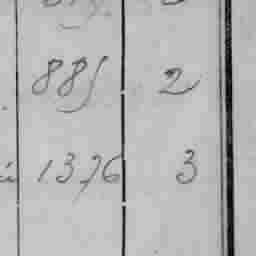 885 2
1376 3